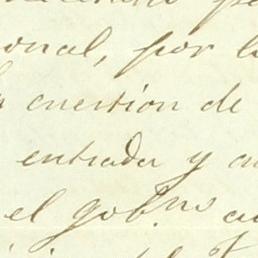 onal, por l
cuestion de
entrada y
el gob.no